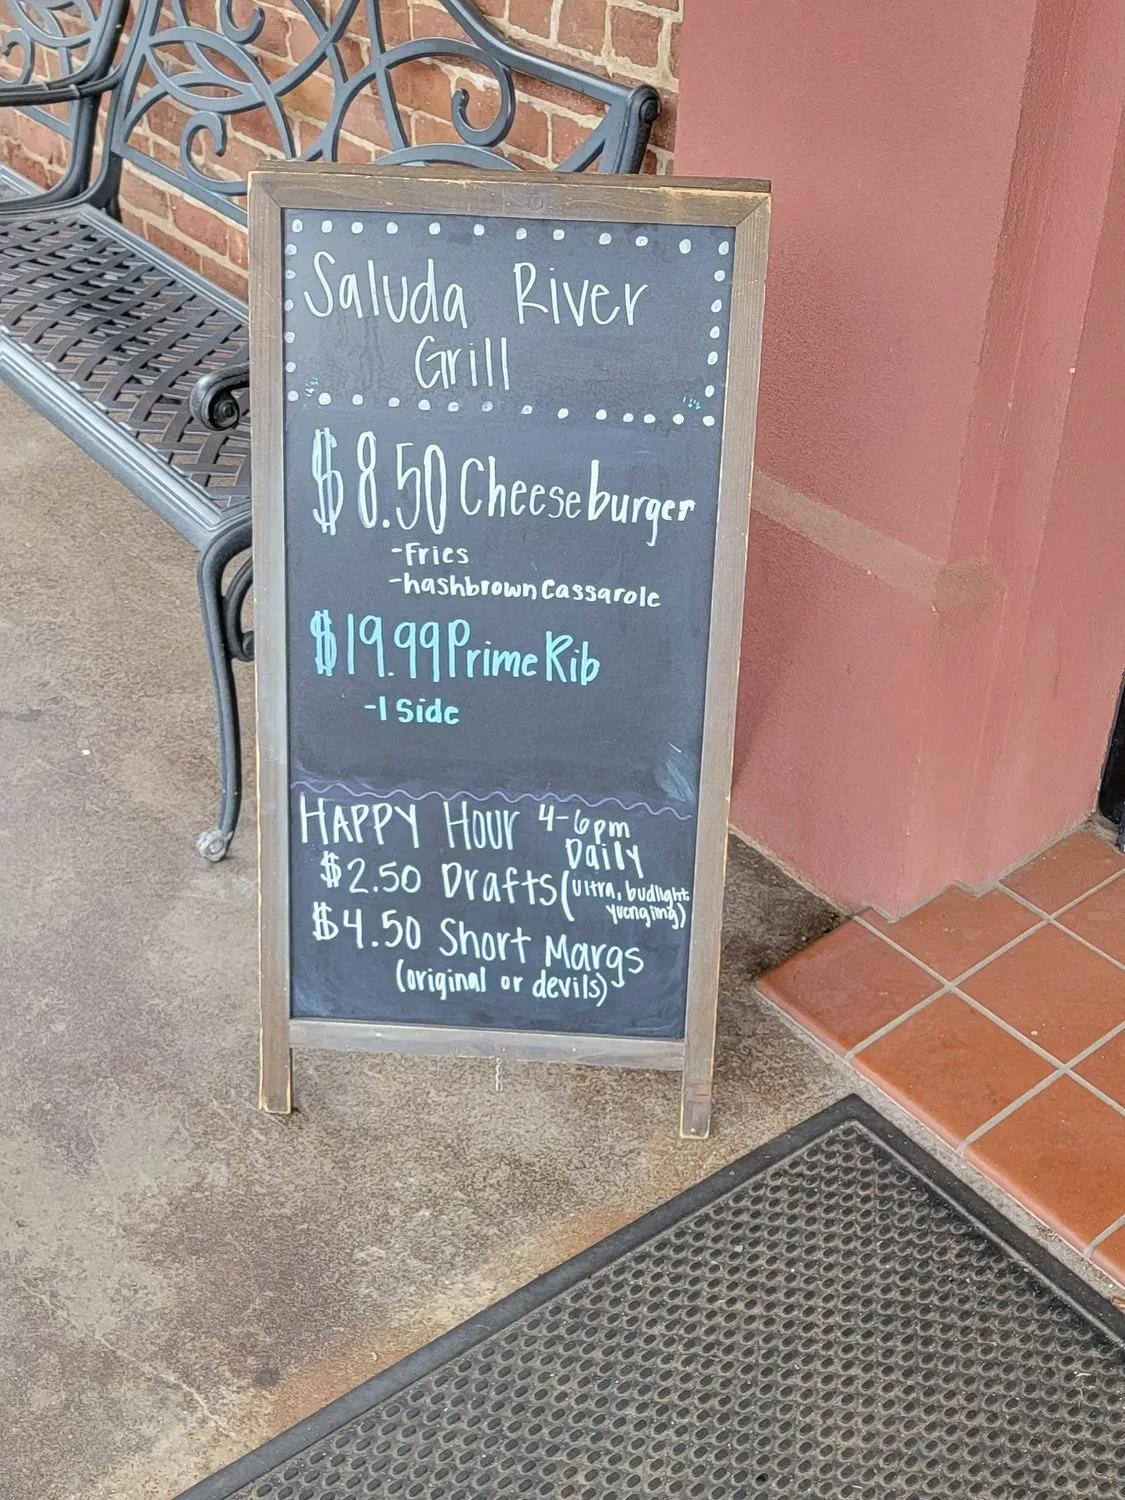 Saluda River
Grill
$8.50 Cheeseburger
-Fries
-hashbrown Cassarole
$19.99 Prime Rib
-1 Side
HAPPY HOUR 4-6pm
Daily
$2.50 Drafts (ultra, budlight,
yuengling)
$4.50 Short Margs
(original or devils)